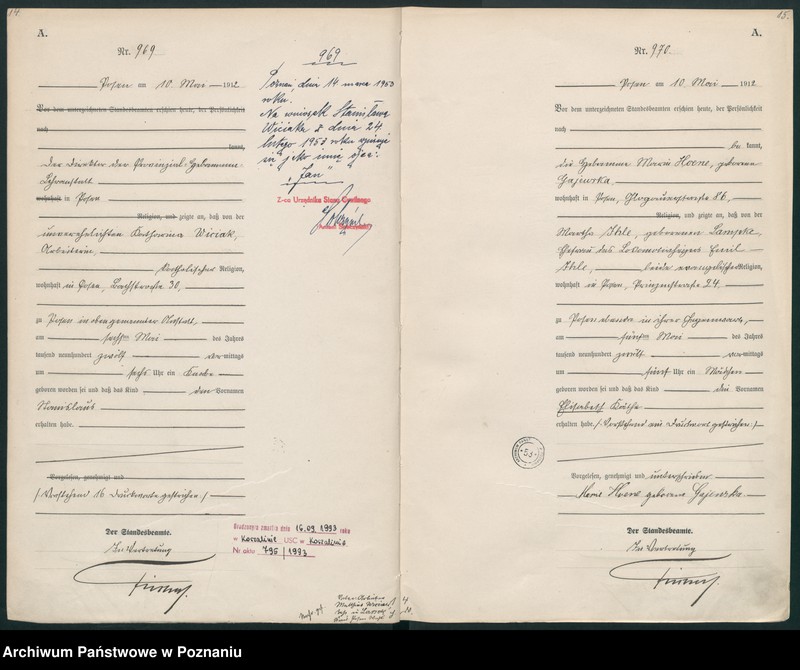 14.
A.
Nr. 969
Posen am 10. Mai 1912
Vor dem unterzeichneten Standesbeamten erschien heute, der Persönlichkeit
nach
kannt,
der Direktor der Provinzial-Hebammen-
Lehranstalt
wohnhaft in Posen
Religion, und zeigte an, daß von der
unverehelichten Katharina Wiciak,
Arbeiterin,
katholischer Religion,
wohnhaft in Posen, Bachstrasse 30,
zu Posen in obengenannter Anstalt,
am sechsten Mai des Jahres
tausend neunhundert zwölf vormittags
um sechs Uhr ein Knabe
geboren worden sei und daß das Kind den Vornamen
Stanislaus
erhalten habe.
Vorgelesen, genehmigt und
/ Vorstehend 16 Druckworte gestrichen /
Der Standesbeamte.
In Vertretung
969
Poznań, dnia 14 marca 1953
roku.
Na wniosek Stanisława
Wiciaka z dnia 24
lutego 1953 roku
się jako imię ojca:
"Jan"
Z-ca Urzędnika Stanu Cywilnego
16.09.1993 roku
w Koszalinie USC w Koszalinie
Nr aktu 795/1993
15.
A.
Nr. 970
Posen am 10. Mai 1912
Vor dem unterzeichneten Standesbeamten erschien heute, der Persönlichkeit
nach
be kannt,
die Hebamme Marie Hoene, geborene
Gajewska,
wohnhaft in Posen, Glogauerstrasse 86,
Religion, und zeigte an, daß von der
Martha geborenen Lampke,
Ehefrau des Lokomotivheizers Emil
beide evangelischer Religion,
wohnhaft in Posen, Prinzenstrasse 24
zu Posen daselbst in ihrer Gegenwart,
am fünften Mai des Jahres
tausend neunhundert zwölf vormittags
um fünf Uhr ein Mädchen
geboren worden sei und daß das Kind die Vornamen
Elisabeth Käthe
erhalten habe. / Vorstehend ein Druckwort gestrichen. /
Vorgelesen, genehmigt und unterschrieben
Marie Hoene geborene Gajewska
Der Standesbeamte.
In Vertretung
Archiwum Państwowe w Poznaniu